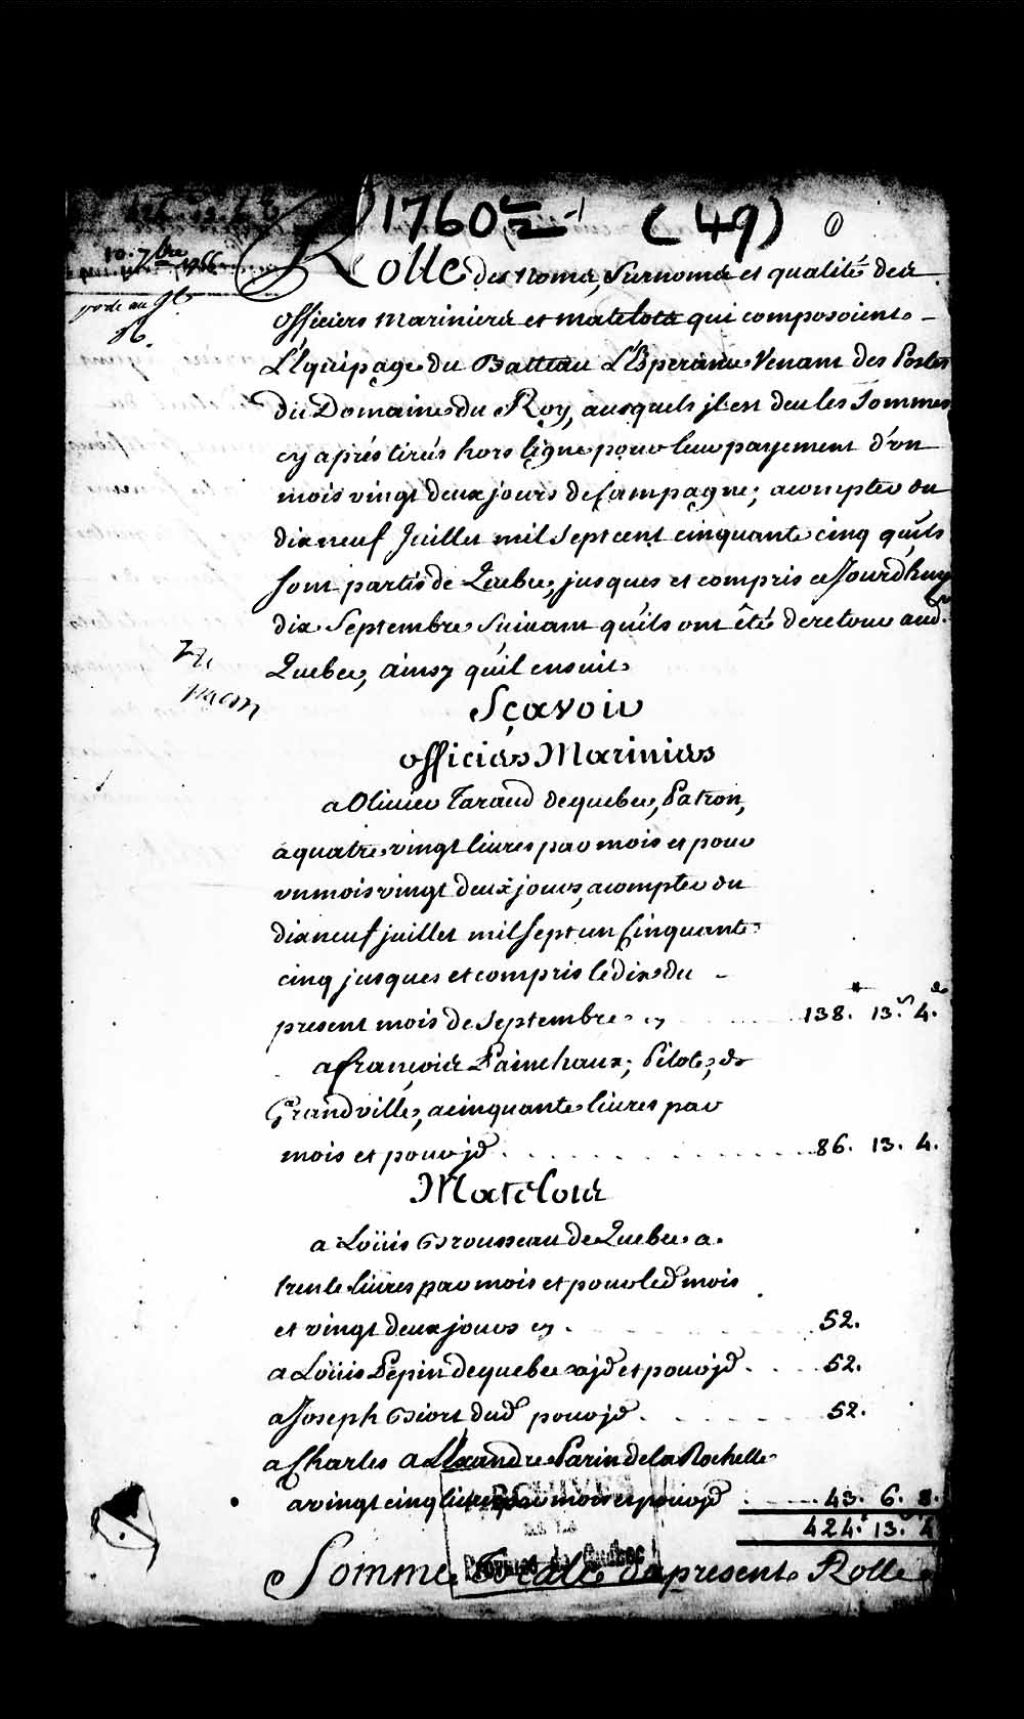 1760 (49)
10. 7bre
Rolle des Noms, Surnoms et qualité des
officiers Mariniers et matelots qui composoient
L'Équipage du Batteau L'Esperance Venant des Postes
du Domaine du Roy, ausquels jl est deu les Sommes
cy aprés tirés hors ligne pour leur payement d'un
mois vingt deux jours de Campagne; acompter du
dix neuf Juillet mil Sept cent cinquante cinq qu'ils
Sont partis de Quebec, jusques et compris ce Jourdhuy
dix Septembre Suivant qu'ils ont été de retour aud.
Quebec, ainsy qu'il ensuit
Sçavoir
officiers Mariniers
a Olivier Taraud de quebec, Patron,
a quatre vingt livres par mois et pour
un mois vingt deux jours, acompter du
dix neuf juillet mil Sept cen Cinquante
cinq jusques et compris le dix du
present mois de Septembre cy 138. 13. 4.
a françois Painchaux, Pilote, de
Grandville, a cinquante livres par
mois et pour jd 86. 13. 4.
Matelots
a Loüis Brousseau de Quebec a
trente livres par mois et pour led mois
et vingt deux jours cy 52.
a Loüis Pepin de quebec a jd et pour jd 52.
a Joseph Giort dud pour jd 52.
a Charles Allexandre Parin de la Rochelle
a vingt cinq livres par mois et pour jd 43. 6. 8.
424. 13. 4
ARCHIVES
DE LA
Province de Québec
Somme Totalle du present Rolle